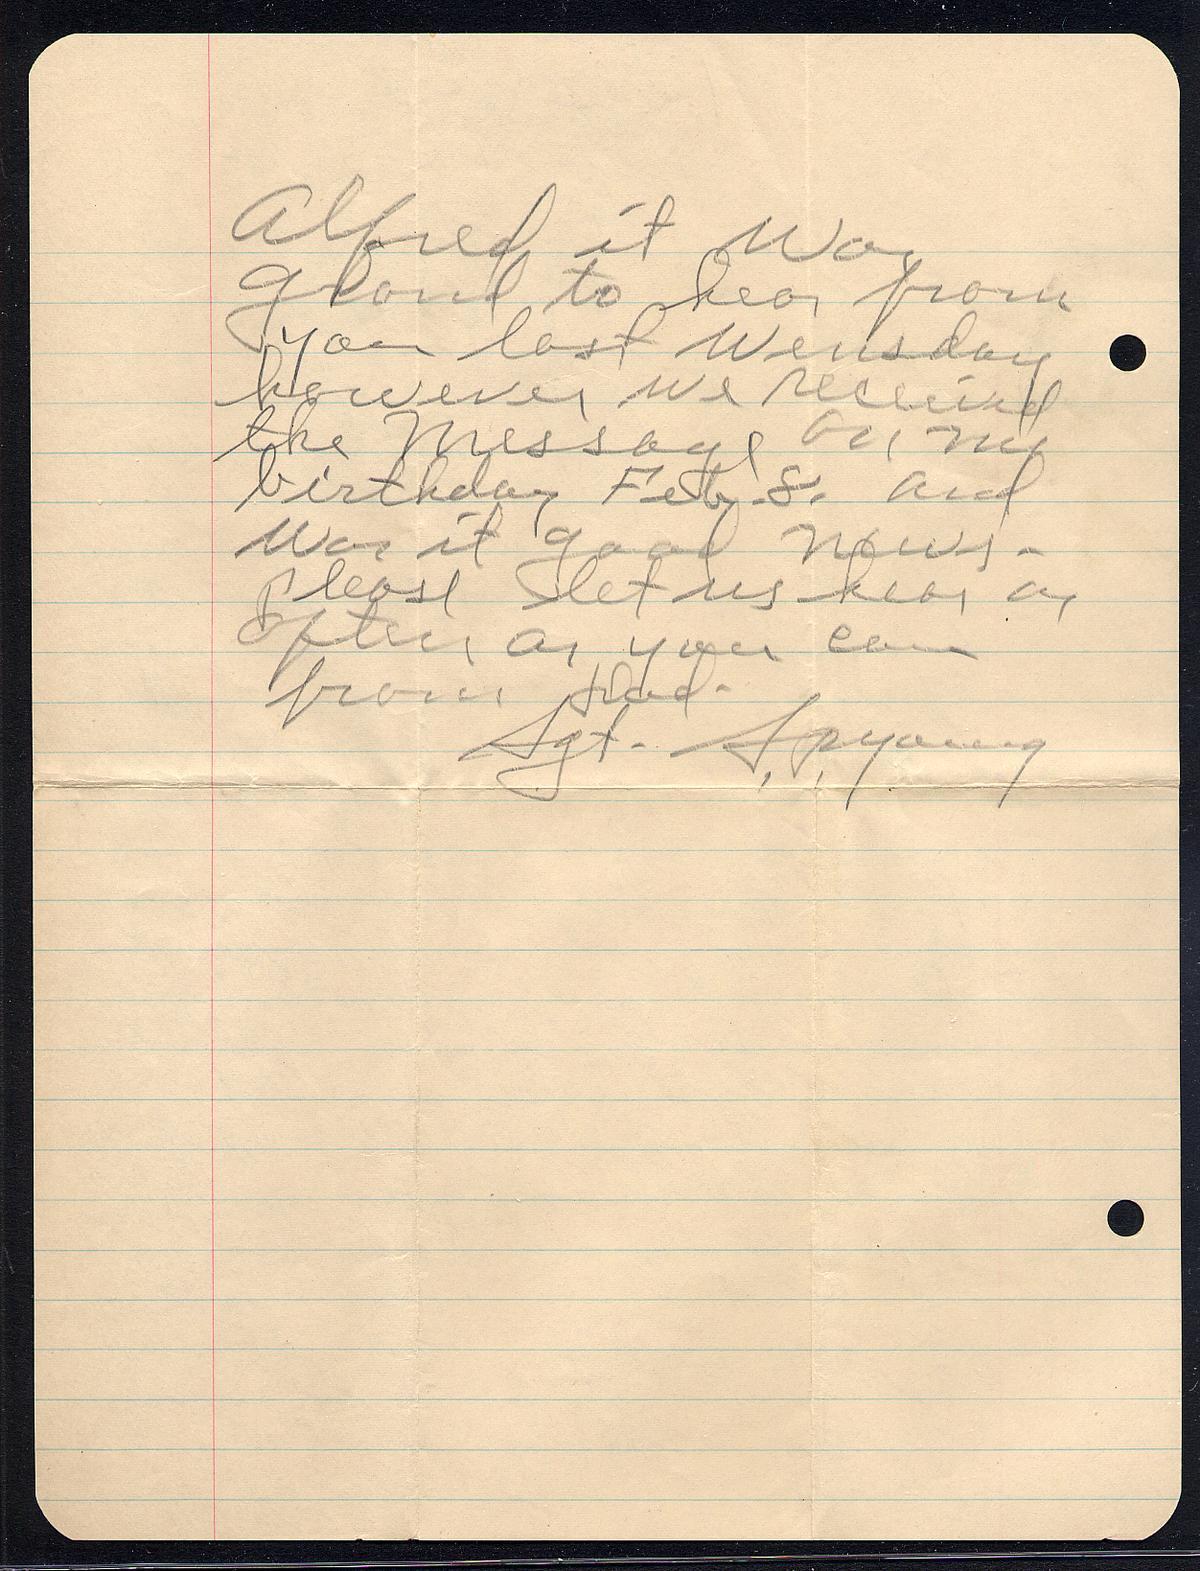 Alfred it was
grand to hear from
you last Wensday
however we received
the Message on my
birthday Feb. 8. and
Was it good News-
please let us hear as
often as you can
from Dad-
Sgt. S. P. Young